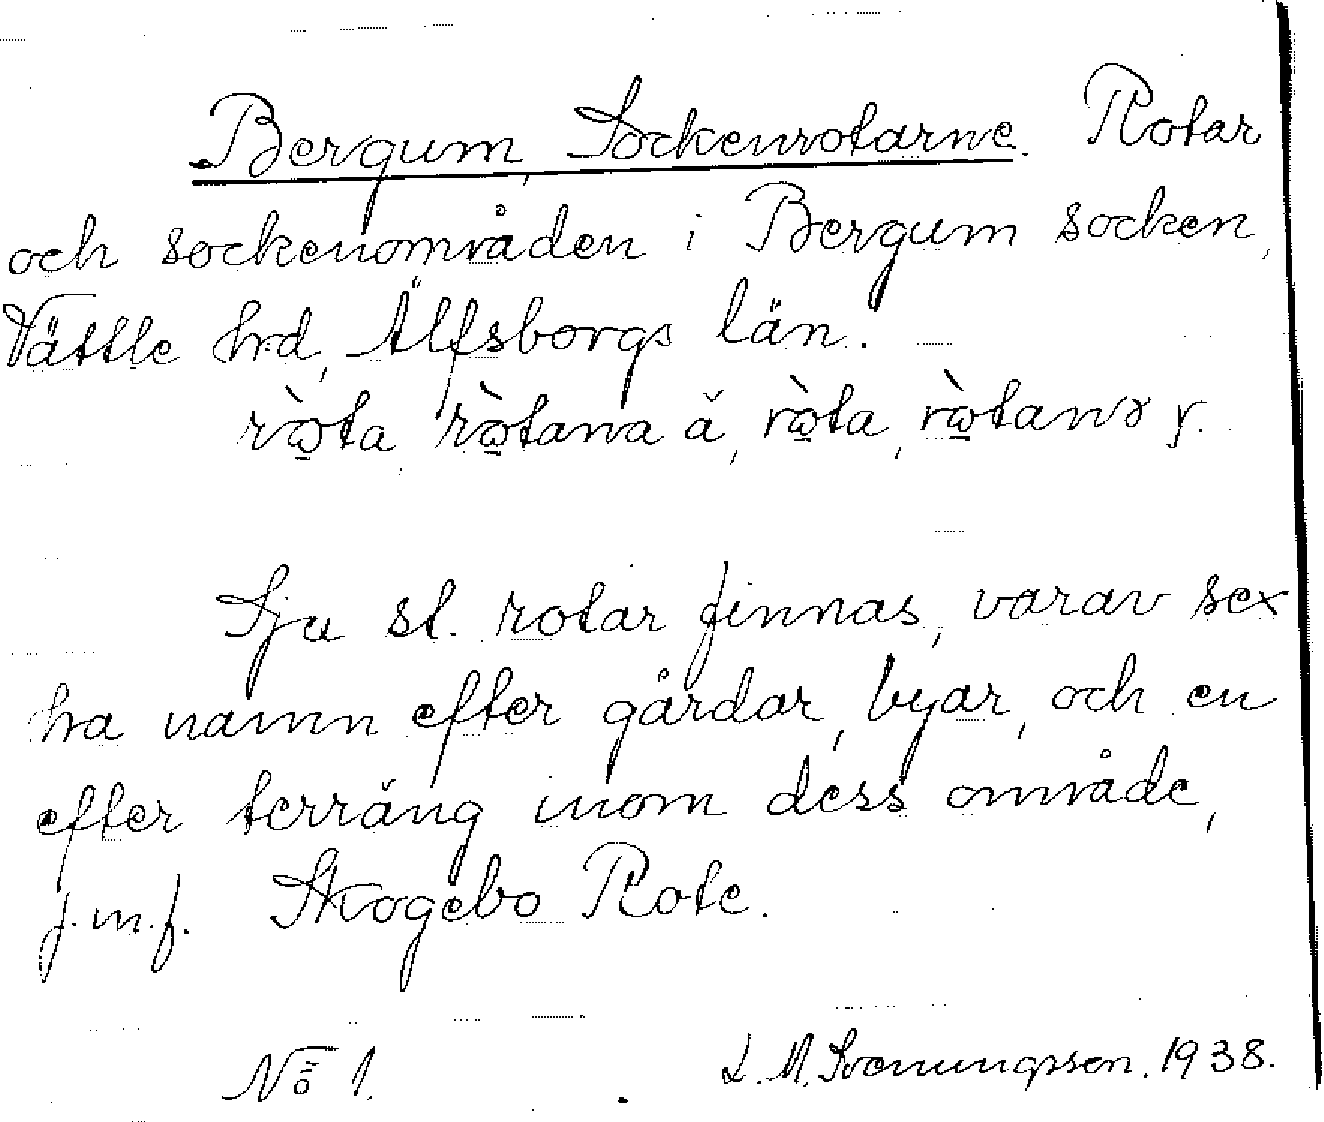 Bergum, Sockenrotarne. Rotar
och sockenområden i Bergum socken,
Vättle hrd, Älfsborgs län.
rò̱ta, rò̱tana ä, rò̱ta, rò̱tanɤ y.
Sju st. rotar finnas, varav sex
ha namn efter gårdar, byar, och en
efter terräng inom dess område,
j.m.f. Skogebo Rote.
No 1. L. M. Svenungsson. 1938.